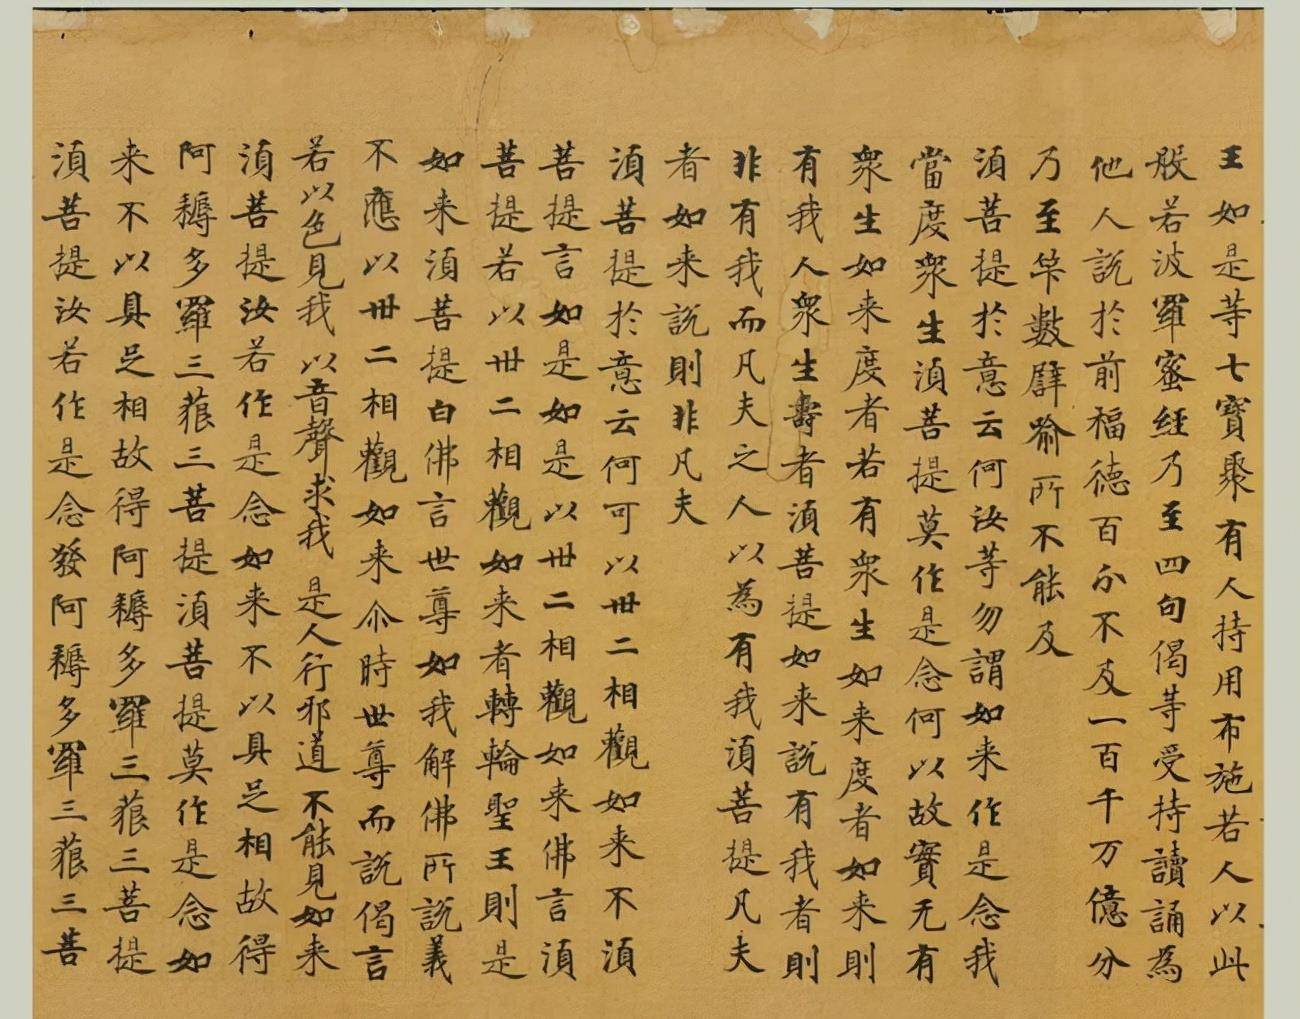 王如是等七寶聚有人持用布施若人以此
般若波羅蜜經乃至四句偈等受持讀誦為
他人說於前福德百分不及一百千万億分
乃至筭數譬喻所不能及
須菩提於意云何汝等勿謂如来作是念我
當度衆生須菩提莫作是念何以故實无有
衆生如来度者若有衆生如来度者如来則
有我人衆生壽者須菩提如来說有我者則
非有我而凡夫之人以為有我須菩提凡夫
者如来說則非凡夫
須菩提於意云何可以卅二相觀如来不須
菩提言如是如是以卅二相觀如来佛言須
菩提若以卅二相觀如来者轉輪聖王則是
如来須菩提白佛言世尊如我解佛所說義
不應以卅二相觀如来尒時世尊而說偈言
若以色見我以音聲求我 是人行邪道不能見如来
須菩提汝若作是念如来不以具足相故得
阿耨多羅三藐三菩提須菩提莫作是念如
来不以具足相故得阿耨多羅三藐三菩提
須菩提汝若作是念發阿耨多羅三藐三菩